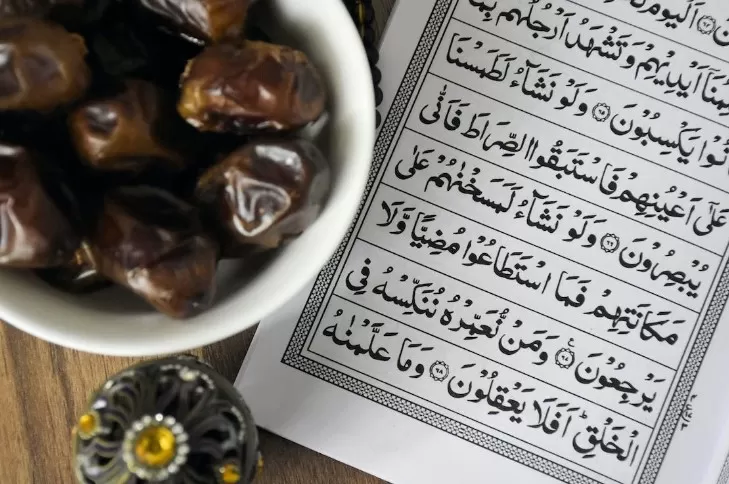 اَلْيَوْمَ
اَيْدِيْهِمْ وَتَشْهَدُ اَرْجُلُهُمْ بِمَا
نُوْا يَكْسِبُوْنَ ۝٦٥ وَلَوْ نَشَآءُ لَطَمَسْنَا
عَلٰٓى اَعْيُنِهِمْ فَاسْتَبَقُوا الصِّرَاطَ فَاَنّٰى
يُبْصِرُوْنَ ۝٦٦ وَلَوْ نَشَآءُ لَمَسَخْنٰهُمْ عَلٰى
مَكَانَتِهِمْ فَمَا اسْتَطَاعُوْا مُضِيًّا وَّلَا
يَرْجِعُوْنَ ۝٦٧ وَمَنْ نُّعَمِّرْهُ نُنَكِّسْهُ فِى
الْخَلْقِ ؕ اَفَلَا يَعْقِلُوْنَ ۝٦٨ وَمَا عَلَّمْنٰهُ